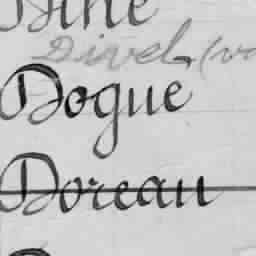 Divel (vo
Dogue
Doreau